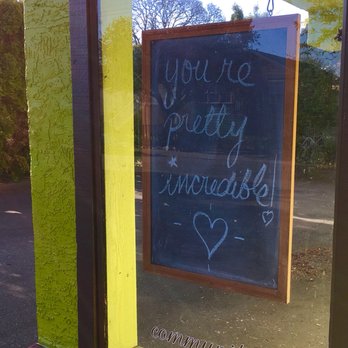 you're
pretty
incredible!